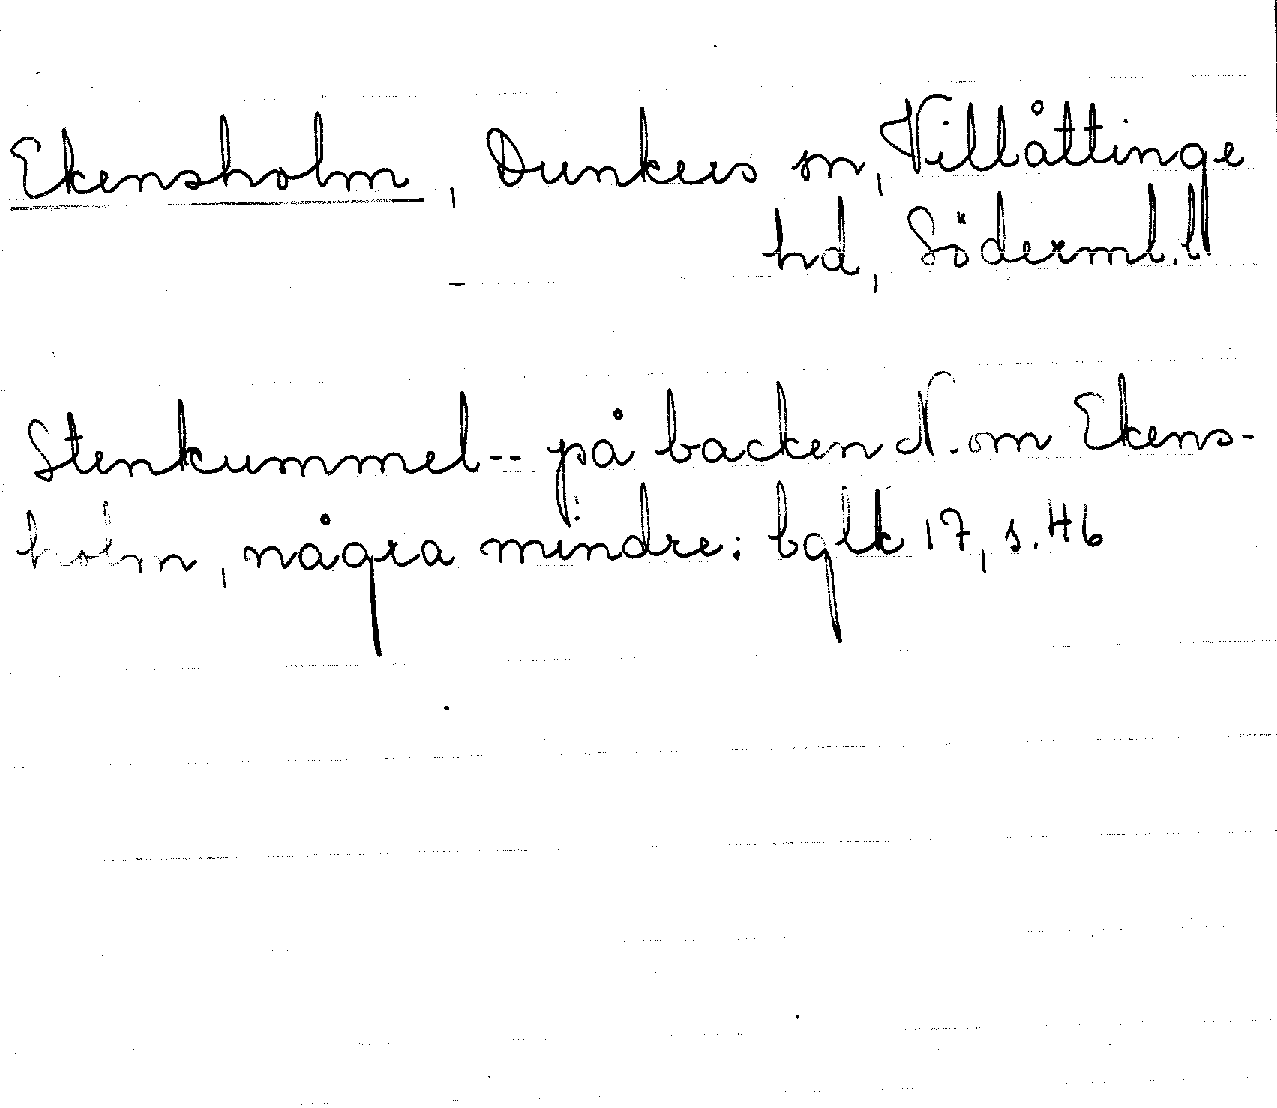 Ekensholm, Dunkers sn, Villåttinge
hd, Söderml. ll
Stenkummel -- på backen N. om Ekens-
holm, några mindre: bglk 17, s. 46